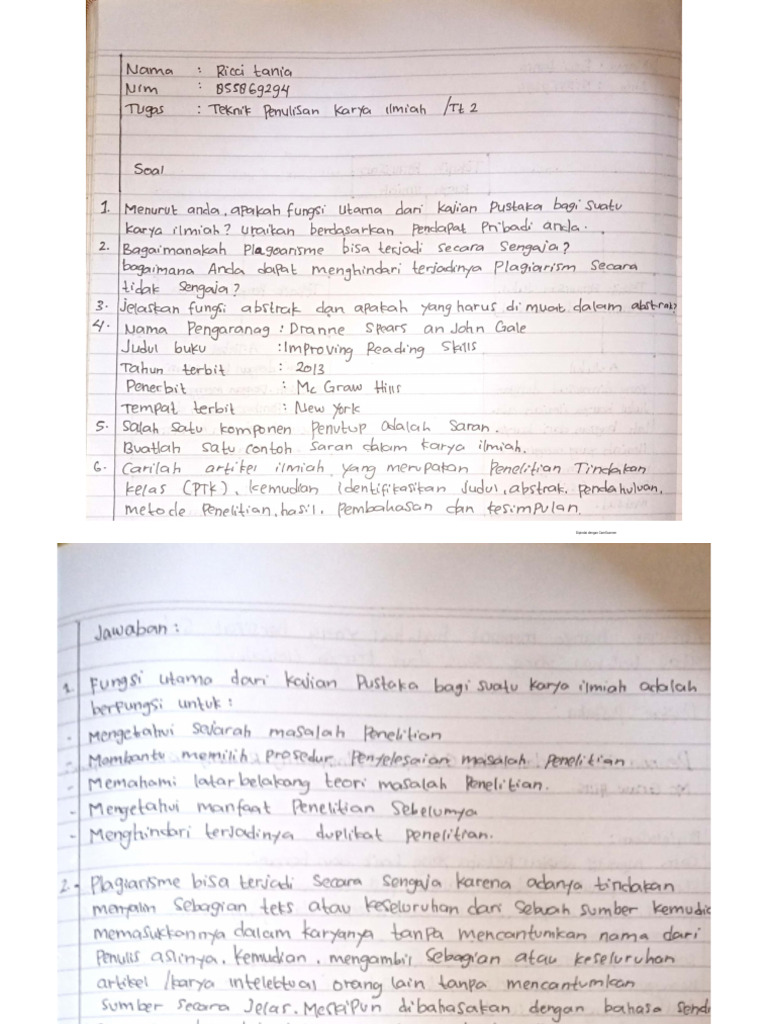 Nama : Ricci tania
Nim : 855869294
Tugas : Teknik Penulisan Karya ilmiah /Tt 2
Soal
1. Menurut anda, apakah fungsi utama dari kajian Pustaka bagi suatu
karya ilmiah? Uraikan berdasarkan Pendapat Pribadi anda.
2. Bagaimanakah Plagoarisme bisa terjadi secara Sengaja?
bagaimana Anda dapat menghindari terjadinya Plagiarism Secara
tidak sengaja?
3. jelaskan fungsi abstrak dan apakah yang harus di muat dalam abstrak?
4. Nama Pengaranag : Dranne Spears an John Gale
Judul buku : Improving Reading Skills
Tahun terbit : 2013
Penerbit : Mc Graw Hills
Tempat terbit : New York
5. Salah Satu komponen Penutup adalah Saran.
Buatlah satu contoh saran dalam karya ilmiah.
6. Carilah artikel ilmiah yang merupakan Penelitian Tindakan
kelas (PTK), kemudian identifikasikan Judul, abstrak, pendahuluan,
metode Penelitian, hasil, Pembahasan dan kesimpulan.
Dipindai dengan CamScanner
Jawaban :
1. Fungsi utama dari kajian Pustaka bagi suatu karya ilmiah adalah
berfungsi untuk :
- Mengetahui sejarah masalah Penelitian
- Mambantu memilih prosedur Penyelesaian masalah Penelitian
- Memahami latar belakang teori masalah Penelitian.
- Mengetahui manfaat Penelitian Sebelumya
- Menghindari terjadinya duplikat penelitian.
2. - Plagiarisme bisa terjadi Secara Sengaja karena adanya tindakan
menyalin sebagian teks atau keseluruhan dari sebuah sumber kemudia
memasukkannya dalam karyanya tanpa mencantumkan nama dari
Penulis aslinya. kemudian, mengambil Sebagian atau keseluruhan
artikel /karya intelektual orang lain tanpa mencantumkan
sumber secara Jelas. Meskipun dibahasakan dengan bahasa sendi